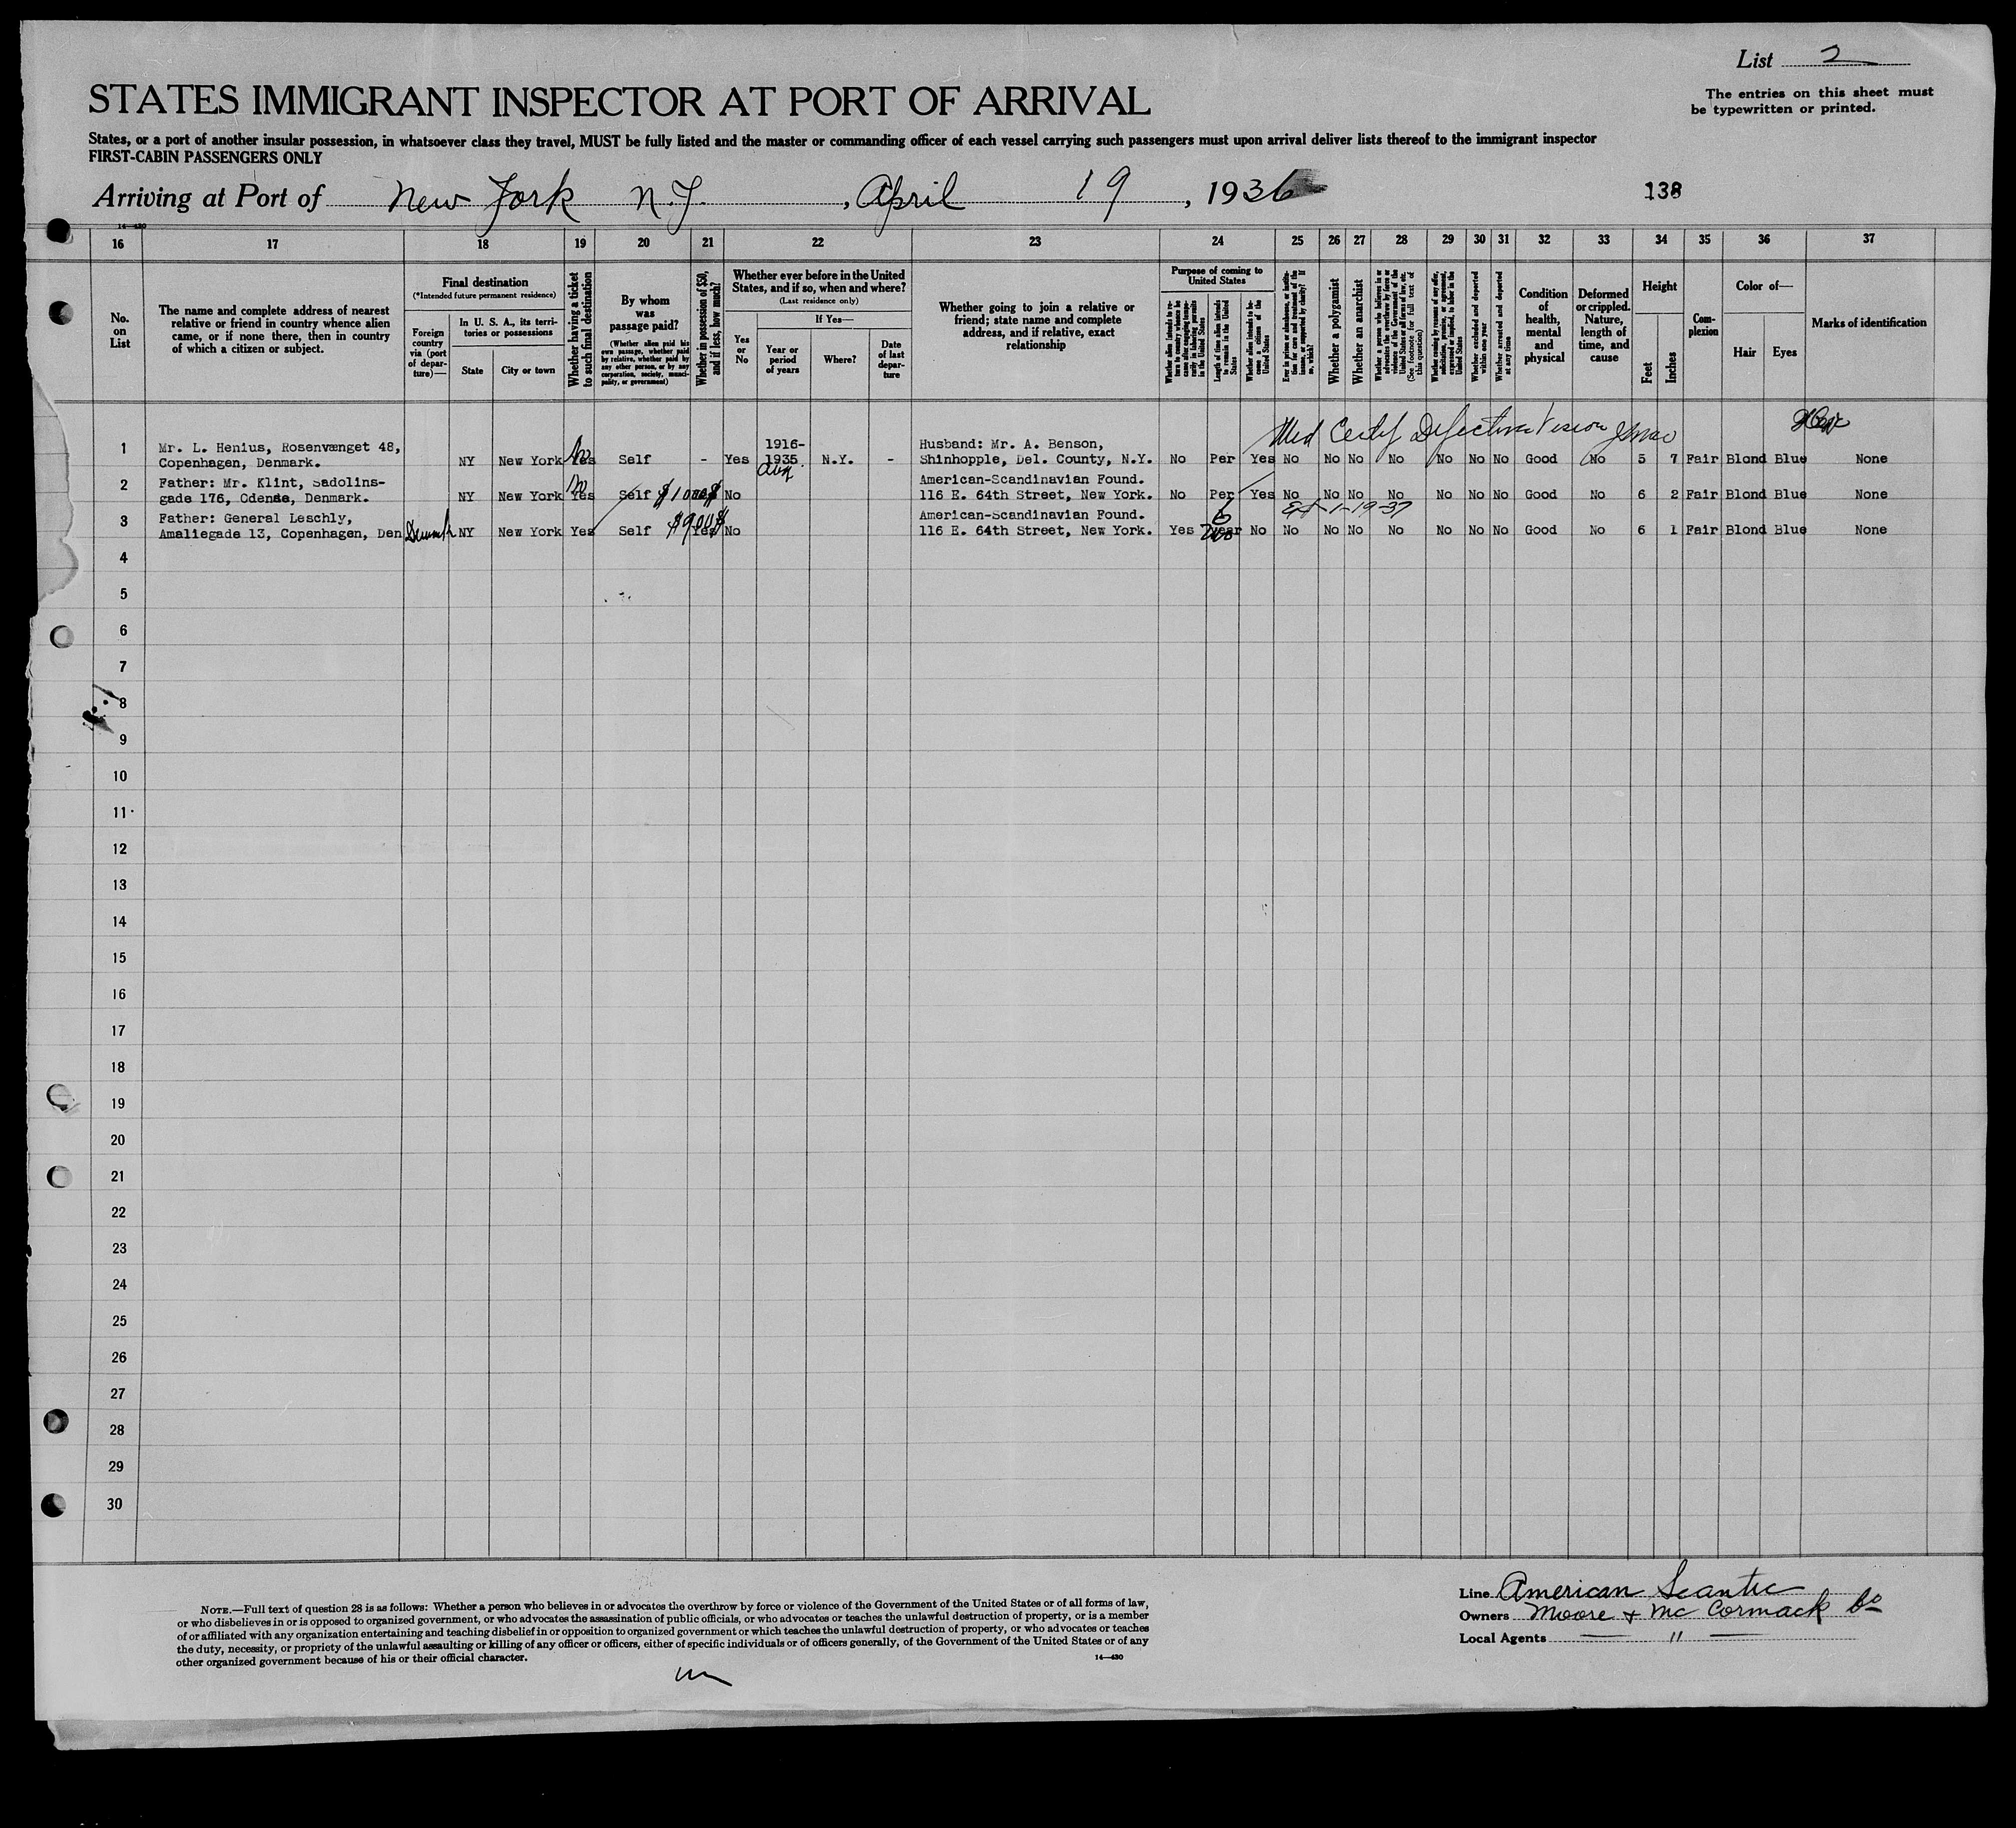 List 2
The entries on this sheet must
be typewritten or printed.
STATES IMMIGRANT INSPECTOR AT PORT OF ARRIVAL
States, or a port of another insular possession, in whatsoever class they travel, MUST be fully listed and the master or commanding officer of each vessel carrying such passengers must upon arrival deliver lists thereof to the immigrant inspector
FIRST-CABIN PASSENGERS ONLY
Arriving at Port of New York N.Y. , April 19 , 1936
138
14-430
16 17 18 19 20 21 22 23 24 25 26 27 28 29 30 31 32 33 34 35 36 37
No.
on
List
The name and complete address of nearest
relative or friend in country whence alien
came, or if none there, then in country
of which a citizen or subject.
Final destination
(*Intended future permanent residence)
Foreign
country
via (port
of depar-
ture)—
In U. S. A., its terri-
tories or possessions
State
City or town
Whether having a ticket
to such final destination
By whom
was
passage paid?
(Whether alien paid his
own passage, whether paid
by relative, whether paid by
any other person, or by any
corporation, society, munici-
pality, or government)
Whether in possession of $50,
and if less, how much?
Whether ever before in the United
States, and if so, when and where?
(Last residence only)
Yes
or
No
If Yes—
Year or
period
of years
Where?
Date
of last
depar-
ture
Whether going to join a relative or
friend; state name and complete
address, and if relative, exact
relationship
Purpose of coming to
United States
Whether alien intends to re-
turn to country whence he
came after engaging tempo-
rarily in laboring pursuits
in the United States
Length of time alien intends
to remain in the United
States
Whether alien intends to be-
come a citizen of the
United States
Ever in prison or almshouse, or institu-
tion for care and treatment of the
insane, or supported by charity? If
so, which?
Whether a polygamist
Whether an anarchist
Whether a person who believes in or
advocates the overthrow by force or
violence of the Government of the
United States or all forms of law, etc.
(See footnote for full text of
this question)
Whether coming by reason of any offer,
solicitation, promise, or agreement,
expressed or implied, to labor in the
United States
Whether excluded and deported
within one year
Whether arrested and deported
at any time
Condition
of
health,
mental
and
physical
Deformed
or crippled.
Nature,
length of
time, and
cause
Height
Feet
Inches
Com-
plexion
Color of—
Hair
Eyes
Marks of identification
Med Certif Defective Vision
1 Mr. L. Henius, Rosenvænget 48, 1916-
Copenhagen, Denmark. NY New York Yes No Self - Yes 1935 Aug. N.Y. - Husband: Mr. A. Benson,
Shinhopple, Del. County, N.Y. No Per Yes No No No No No No No Good No 5 7 Fair Blond Blue None
2 Father: Mr. Klint, Sadolins-
gade 176, Odense, Denmark. NY New York Yes No Self $1000$ No American-Scandinavian Found.
116 E. 64th Street, New York. No Per Yes No No No No No No No Good No 6 2 Fair Blond Blue None
Ext 1-19-37
3 Father: General Leschly,
Amaliegade 13, Copenhagen, Den Denmark NY New York Yes Self $900$ Yes No American-Scandinavian Found.
116 E. 64th Street, New York. Yes year No No No No No No No No Good No 6 1 Fair Blond Blue None
4
5
6
7
8
9
10
11
12
13
14
15
16
17
18
19
20
21
22
23
24
25
26
27
28
29
30
NOTE.—Full text of question 28 is as follows: Whether a person who believes in or advocates the overthrow by force or violence of the Government of the United States or of all forms of law,
or who disbelieves in or is opposed to organized government, or who advocates the assassination of public officials, or who advocates or teaches the unlawful destruction of property, or is a member
of or affiliated with any organization entertaining and teaching disbelief in or opposition to organized government or which teaches the unlawful destruction of property, or who advocates or teaches
the duty, necessity, or propriety of the unlawful assaulting or killing of any officer or officers, either of specific individuals or of officers generally, of the Government of the United States or of any
other organized government because of his or their official character.
14-430
Line American Scantic
Owners Moore & McCormack Co
Local Agents "